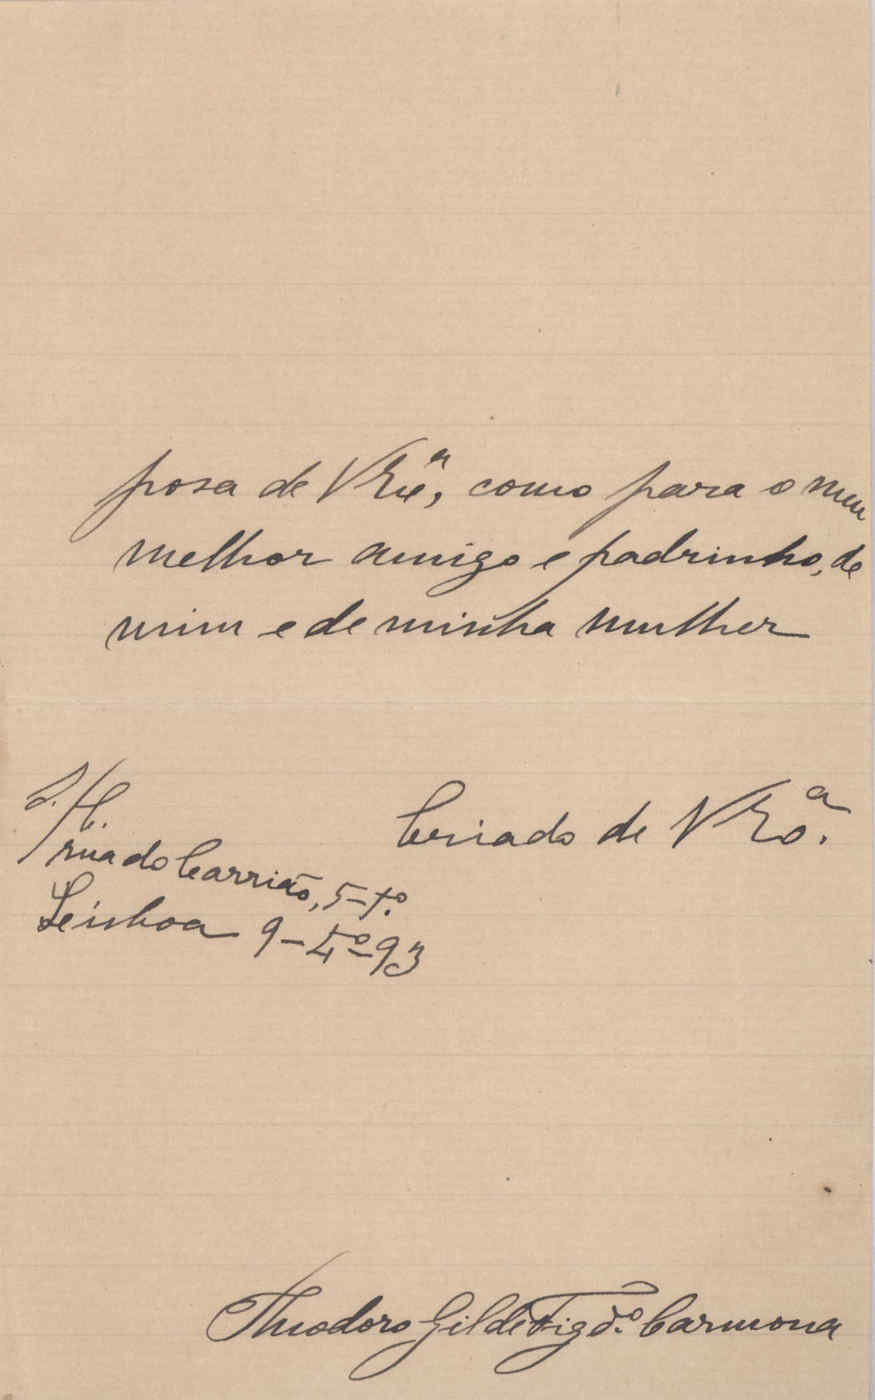 posa de V Exª, como para o meu
melhor amigo e padrinho, de
mim e de minha mulher
Criado de V Exª.
S. H.
rua do Carrião, 5-1º.
Lisboa 9-4º-93
Theodoro Gil de Figdº. Carmona